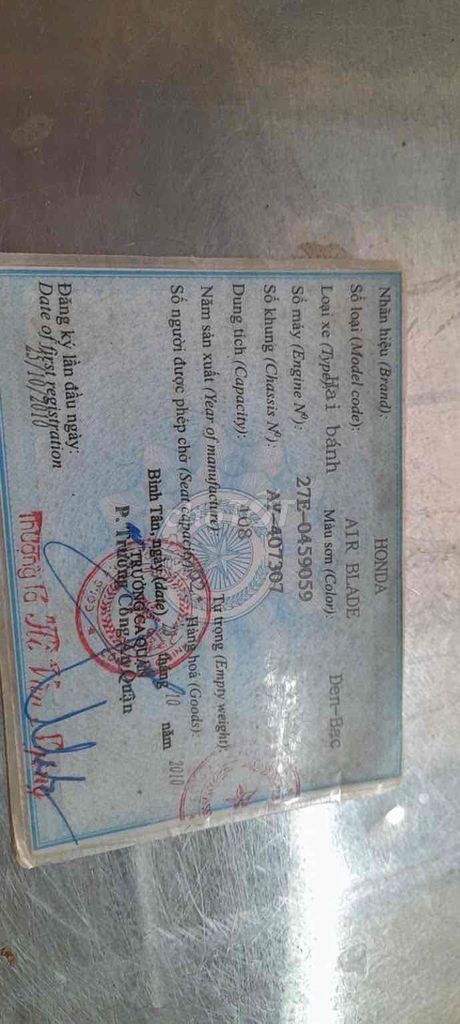 Nhãn hiệu (Brand): HONDA
Số loại (Model code): AIR BLADE
Loại xe (Type): Hai bánh Màu sơn (Color): Đen-Bạc
Số máy (Engine Nº): 27E-0459059
Số khung (Chassis Nº): AY-407307
Dung tích (Capacity): 108
Năm sản xuất (Year of manufacture): Tự trọng (Empty weight):
Số người được phép chở (Seat capacity): 02 Hàng hoá (Goods):
Bình Tân, ngày (date) tháng 10 năm 2010
TRƯỞNG CA QUẬN
P. Trưởng Công An Quận
Đăng ký lần đầu ngày:
Date of first registration
/10/2010
Thượng Tá